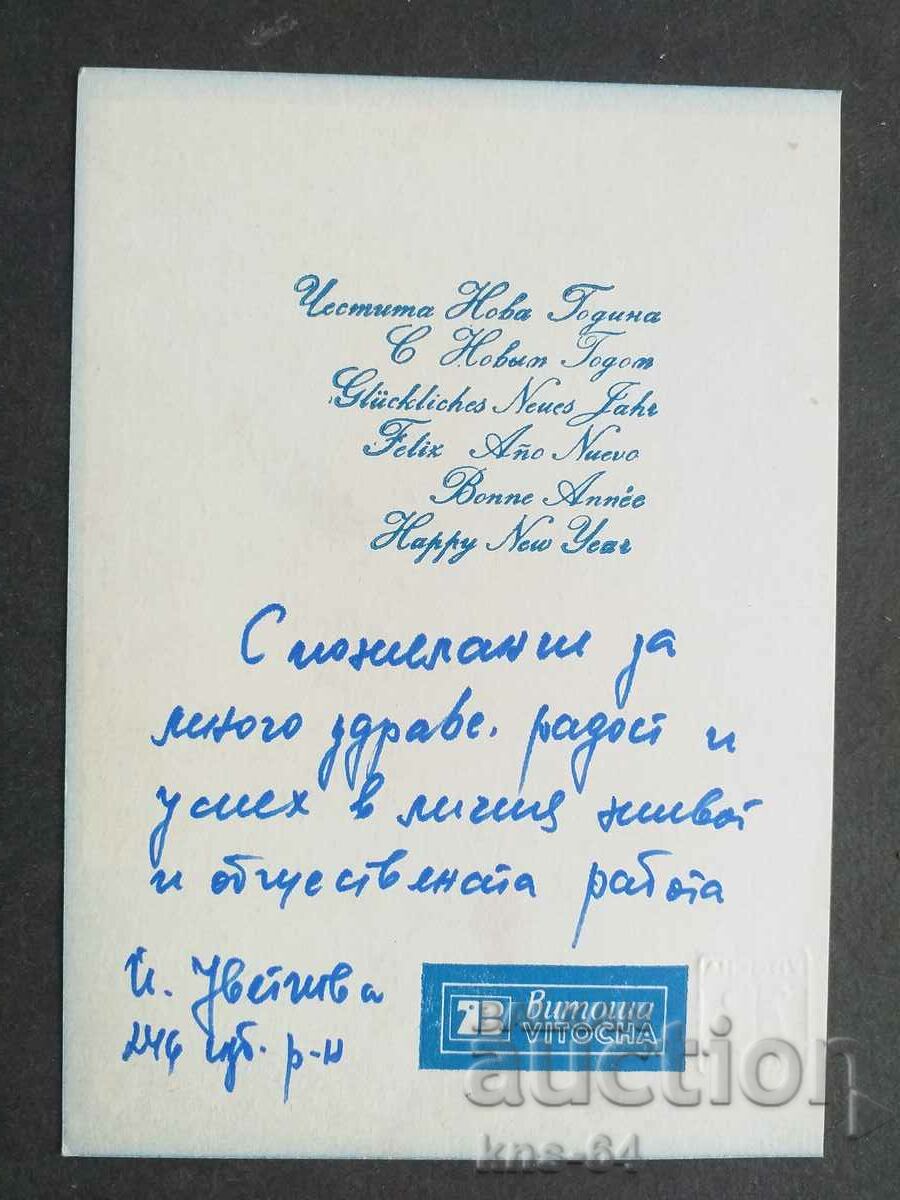 Честита Нова Година
С Новым Годом
Glückliches Neues Jahr
Felix Año Nuevo
Bonne Année
Happy New Year
С пожелание за
много здраве. радост и
успех в личния живот
и обществената работа
Й.
246 изб. р-н
Витоша
VITOCHA
auction
kns-64